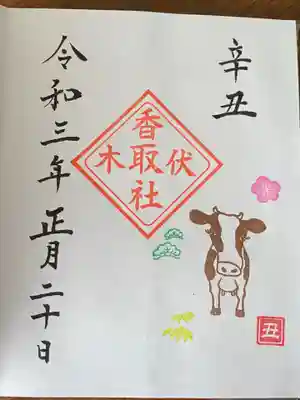 辛丑
伏木
香取社
令和三年正月二十日
丑